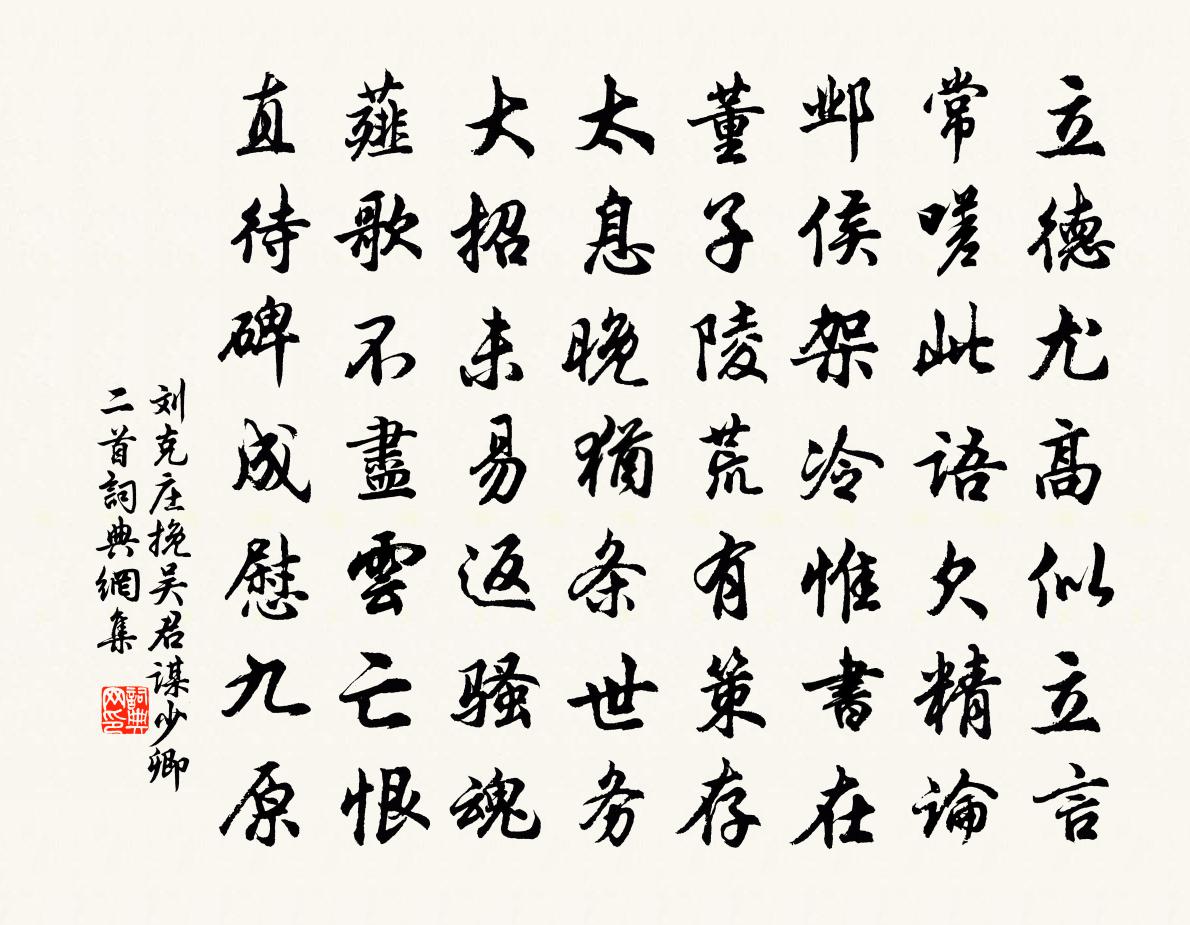 立德尤高似立言
常嗟此語欠精論
邺侯架冷惟書在
董子陵荒有策存
太息晚猶条世务
大招未易返骚魂
薤歌不盡雲亡恨
直待碑成慰九原
刘克庄挽吴君谋少卿
二首詞典網集
詞典网印